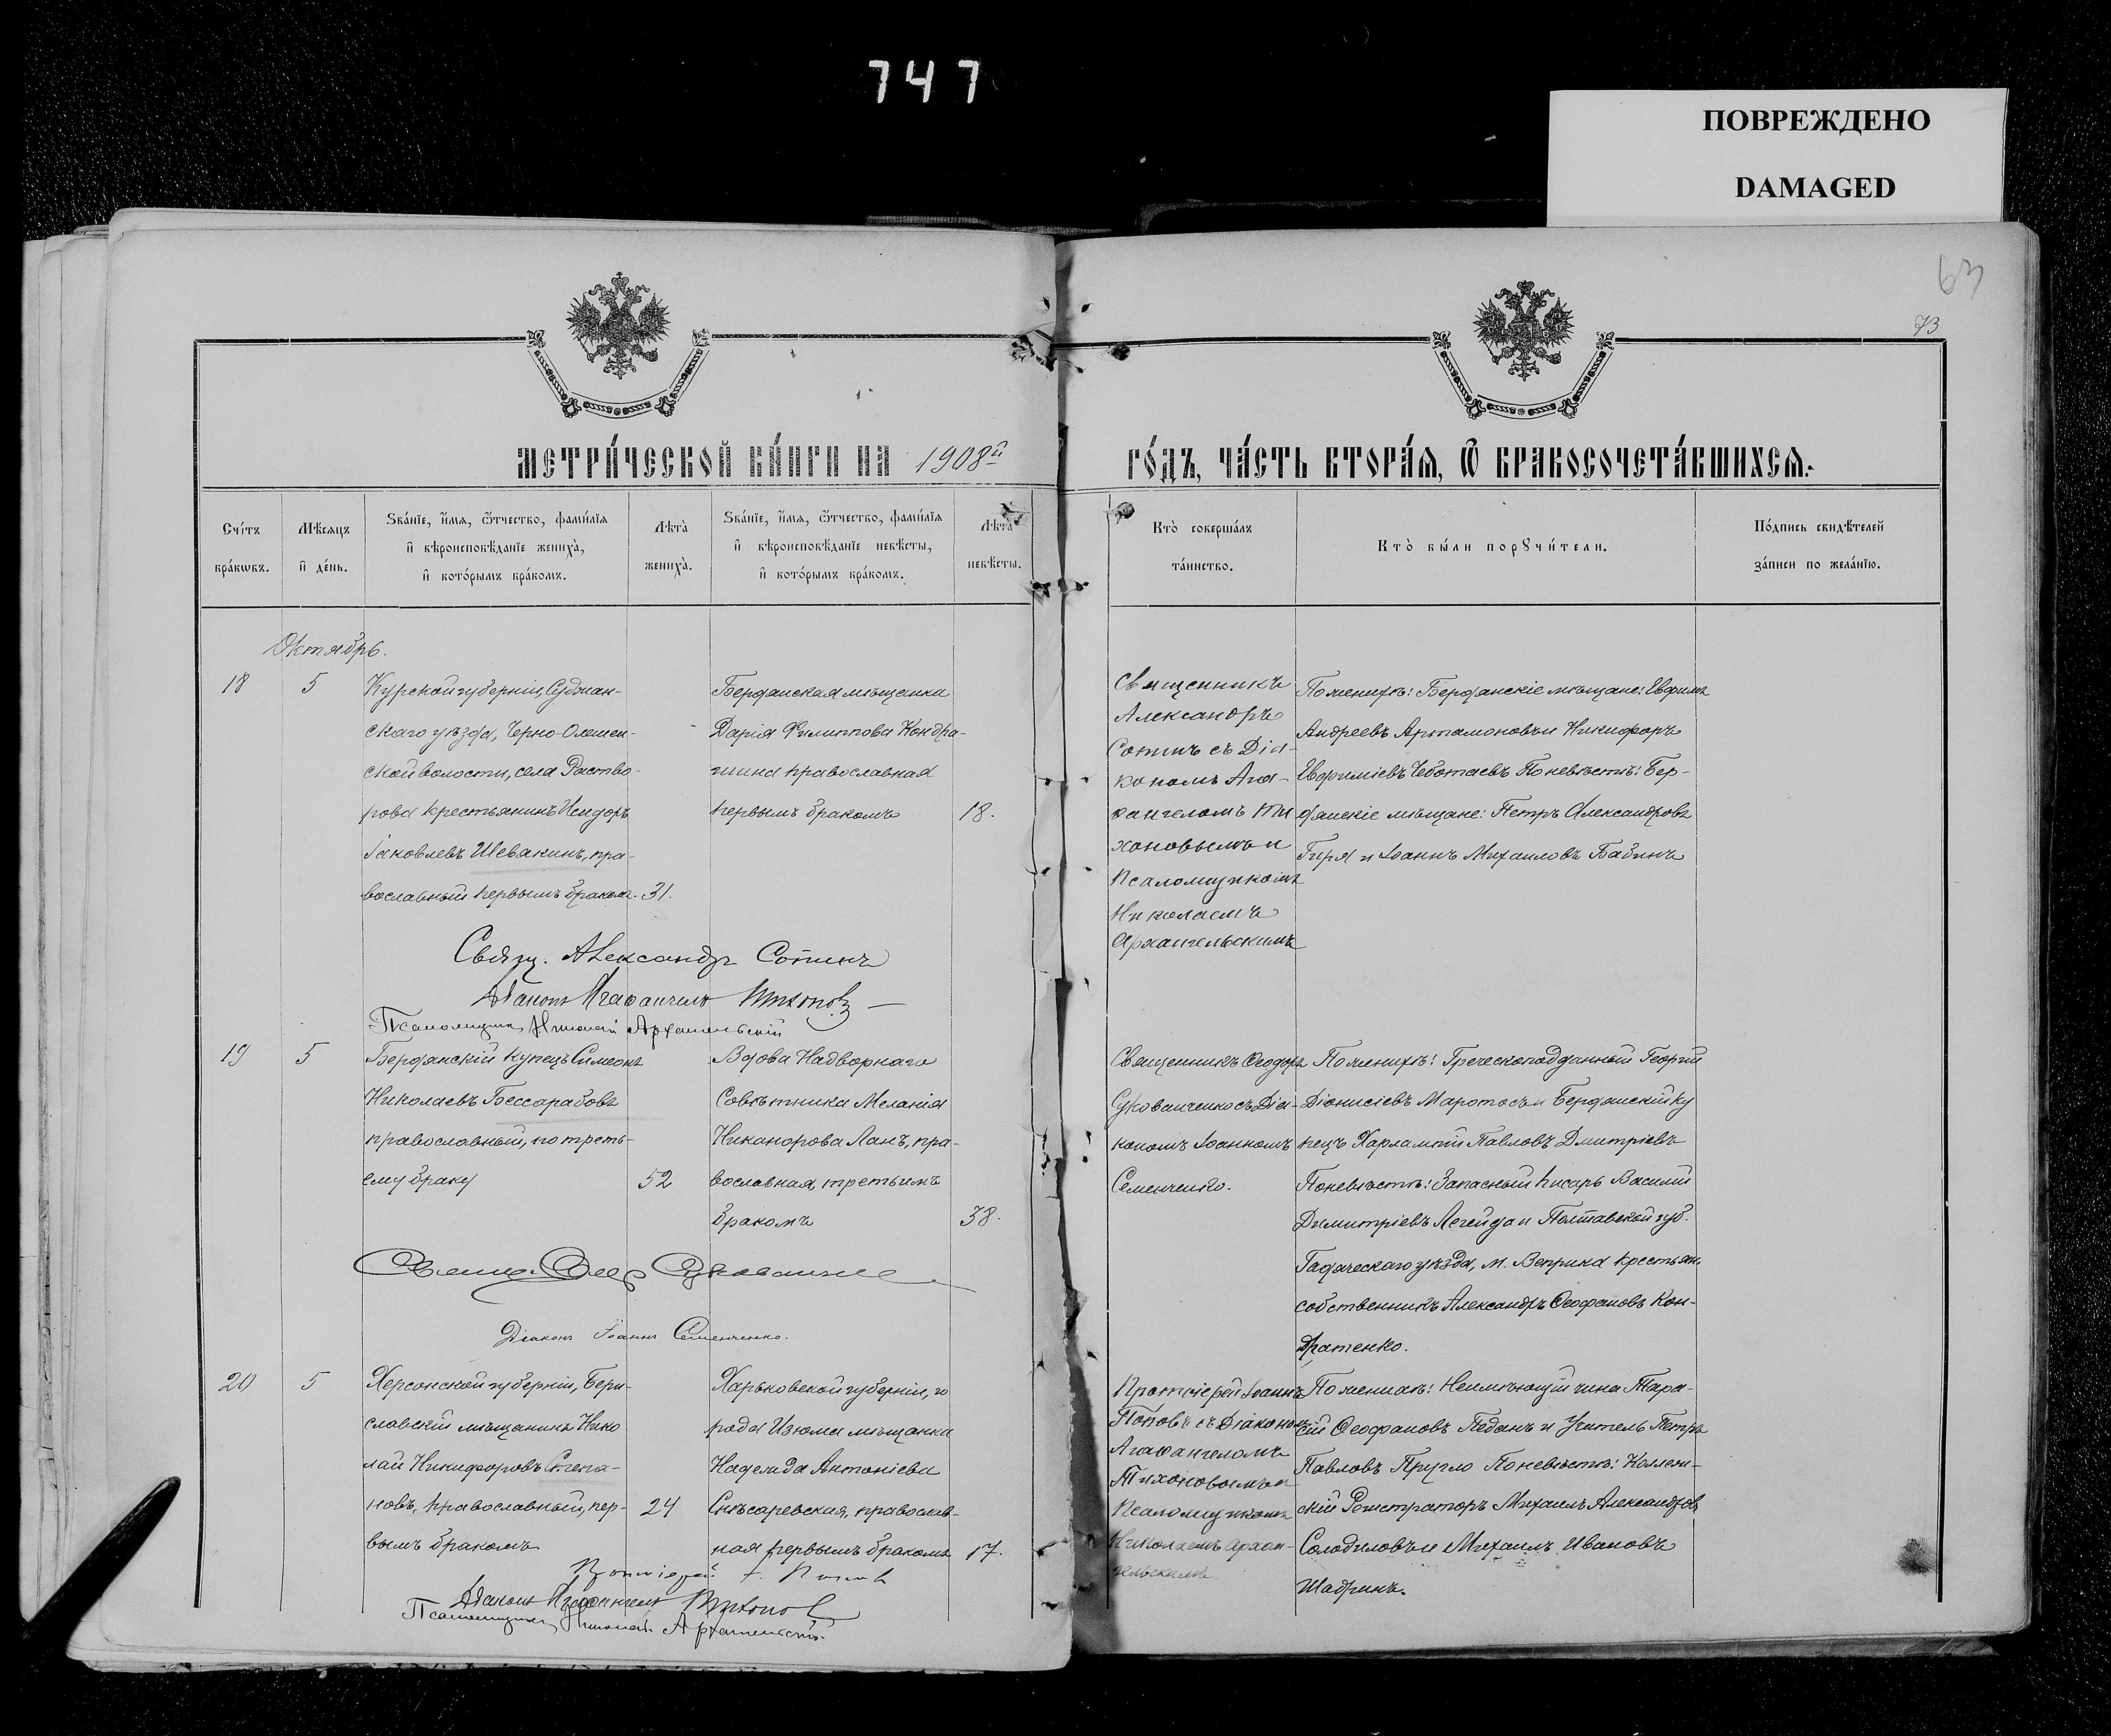 747
ПОВРЕЖДЕНО
DAMAGED
63
73
МЕТРИ́ЧЕСКОЙ КНИ́ГИ НА 1908й
ГО́ДЪ, ЧА́СТЬ ВТОРА́Ѧ, Ѿ БРАКОСОЧЕТА́ВШИХСѦ.
Сче́тъ
бра́кѡвъ.
Мѣ́сѧцъ
и҆ де́нь.
Ѕва́нїе, и҆́мѧ, ѻ҆́тчество, фами́лїѧ
и҆ вѣроисповѣ́данїе жениха̀,
и҆ кото́рымъ бра́комъ.
Лѣта̀
жениха̀.
Ѕва́нїе, и҆́мѧ, ѻ҆́тчество, фами́лїѧ
и҆ вѣроисповѣ́данїе невѣ́сты,
и҆ кото́рымъ бра́комъ.
Лѣта̀
невѣ́сты.
Кто̀ соверша́лъ
та́инство.
Кто̀ бы́ли порꙋчи́тели.
По́дпись свидѣ́телей
за́писи по жела́нїю.
Октябрь.
18
5
Курской губерніи, Суджан-
скаго уѣзда, Черно-Олешен-
ской волости, села Раство-
рова крестьянинъ Исидоръ
Іаковлевъ Шевякинъ, пра-
вославный первымъ бракомъ.
31.
Бердянская мѣщанка
Дарія Филиппова Кондра-
шина православная
первымъ бракомъ
18.
Священникъ
Александръ
Сотинъ съ Діа-
кономъ Ага-
ѳангеломъ Ти
хоновымъ и
Псаломщикомъ
Николаемъ
Архангельскимъ
По женихѣ: Бердянскіе мѣщане: Евфимъ
Андреевъ Артамоновъ и Никифоръ
Евфиміевъ Чеботаевъ По невѣстѣ: Бер-
дянскіе мѣщане: Петръ Александровъ
Гиря и Іоаннъ Михаиловъ Бабинъ
Свящ. Александръ Сотинъ
Діаконъ Агаѳангелъ Тихоновъ
Псаломщикъ Николай Архангельскій
19
5
Бердянскій купецъ Симеонъ
Николаевъ Бессарабовъ
православный, по треть-
ему браку
52
Вдова Надворнаго
Совѣтника Меланія
Никанорова Ланъ, пра-
вославная, третьимъ
бракомъ
38.
Священникъ Ѳеодоръ
Сукованченко съ Діа-
кономъ Іоанномъ
Семенченко.
По женихѣ: Греческоподданный Георгій
Діонисіевъ Маротосъ и Бердянскій ку
пецъ Харлампій Павловъ Дмитріевъ
По невѣстѣ: Запасный писарь Василій
Димитріевъ Легейда и Полтавской губ.
Гадяческаго уѣзда, м. Веприка крестьян.
собственникъ Александръ Ѳеофановъ Кон-
дратенко.
Діаконъ Іоаннъ Семенченко.
20
5
Херсонской губерніи, Бери-
славскій мѣщанинъ Нико
лай Никифоровъ Степа-
новъ, православный, пер-
вымъ бракомъ.
24
Харьковской губерніи, го
рода Изюма мѣщанка
Надежда Антоніева
Снѣсаревская, православ-
ная первымъ бракомъ
17.
Протоіерей Іоаннъ
Поповъ съ Діакономъ
Агаѳангеломъ
Тихоновымъ и
Псаломщикомъ
Николаемъ Архан-
гельскимъ
По женихѣ: Неимѣющій чина Тара-
сій Ѳеофановъ Педанъ и Учитель Петръ
Павловъ Пругло По невѣстѣ: Коллеж-
скій Регистраторъ Михаилъ Александровъ
Солодиловъ и Михаилъ Ивановъ
Шадринъ.
Протоіерей І. Поповъ
Діаконъ Агаѳангелъ Тихоновъ
Псаломщикъ Николай Архангельскій